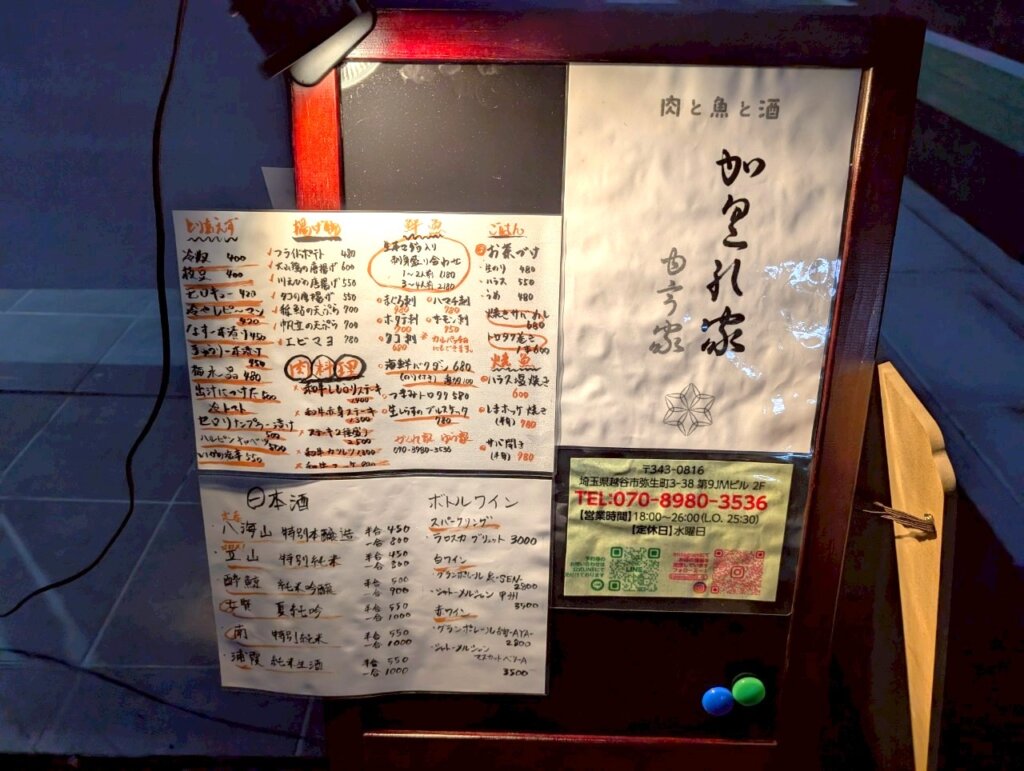 とりあえず
冷奴 400
枝豆 400
モロキュー 420
冷やしピーマン
420
なす一本漬り 450
きゅうり一本漬け
450
梅水晶 480
出汁につけた 500
冷トマト
セロリナンプラー漬け
500
ハルピンキャベツ
500
いかの塩辛 550
揚げ物
フライドポテト 480
大山鶏の唐揚げ 600
川えびの唐揚げ 550
タコの唐揚げ 550
稚鮎の天ぷら 700
帆立の天ぷら 700
エビマヨ 780
肉料理
和牛赤身ステーキ
1300
和牛カツレツ 1300
鮮魚
生本マグロ入り
刺身盛り合わせ
1〜2人前 1180
3〜4人前 2180
まぐろ刺
980
ハマチ刺
780
ホタテ刺
700
サーモン刺
750
タコ刺
680
カルパッチョ
にもできます。
海鮮バクダン 680
つまみトロタク 580
生しらすのブルスケッタ
780
かくれ家 ゆう家
070-8980-3536
ごはん
お茶づけ
・のり 480
・ハラス 550
・うめ 480
焼きサバめし
680
トロタク巻き
1本 600
焼魚
ハラス塩焼き
600
しまホッケ焼き
(半身) 980
サバ開き
(半身) 980
日本酒
八海山 特別本醸造 半合 450
一合 800
立山 特別純米 半合 450
一合 800
酔鯨 純米吟醸 半合 500
一合 900
夏純吟 半合 550
一合 1000
南 特別純米 半合 550
一合 1000
浦霞 純米生酒 半合 550
一合 1000
ボトルワイン
スパークリング
・ラロスカ ブリュット 3000
白ワイン
・グランポレール 泉-SEN-
2800
・シャトーメルシャン 甲州
3500
赤ワイン
・グランポレール 絢-AYA-
2800
・シャトーメルシャン
マスカットベリーA
3500
肉と魚と酒
〒343-0816
埼玉県越谷市弥生町3-38 第9JMビル 2F
TEL:070-8980-3536
【営業時間】18:00〜26:00(L.O. 25:30)
【定休日】水曜日
LINE